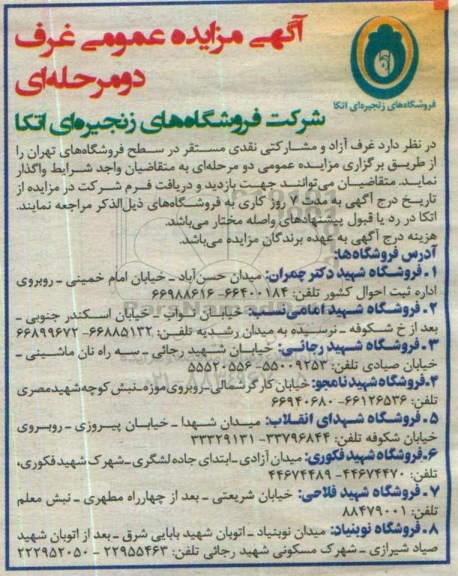 آگهی مزایده عمومی غرف
دومرحله‌ای
فروشگاه‌های زنجیره‌ای اتکا
شرکت فروشگاه‌های زنجیره‌ای اتکا
در نظر دارد غرف آزاد و مشارکتی نقدی مستقر در سطح فروشگاه‌های تهران را
از طریق برگزاری مزایده عمومی دو مرحله‌ای به متقاضیان واجد شرایط واگذار
نماید. متقاضیان می‌توانند جهت بازدید و دریافت فرم شرکت در مزایده از
تاریخ درج آگهی به مدت ۷ روز کاری به فروشگاه‌های ذیل‌الذکر مراجعه نمایند.
اتکا در رد یا قبول پیشنهادهای واصله مختار می‌باشد.
هزینه درج آگهی به عهده برندگان مزایده می‌باشد.
آدرس فروشگاه‌ها:
۱ـ فروشگاه شهید دکتر چمران: میدان حسن‌آباد ـ خیابان امام خمینی ـ روبروی
اداره ثبت احوال کشور تلفن: ۶۶۴۰۰۱۸۴- ۶۶۹۸۸۶۱۶
۲ـ فروشگاه شهید امامی‌نسب: خیابان نواب ـ خیابان اسکندر جنوبی ـ
بعد از خ شکوفه ـ نرسیده به میدان رشدیه تلفن: ۶۶۸۸۵۱۳۲- ۶۶۸۹۹۶۷۲
۳ـ فروشگاه شهید رجائی: خیابان شهید رجائی ـ سه راه نان ماشینی ـ
خیابان صیادی تلفن: ۵۵۰۰۹۲۵۳- ۵۵۵۲۰۵۵۶
۴ـ فروشگاه شهید نامجو: خیابان کارگرشمالی ـ روبروی موزه ـ نبش کوچه شهید مصری
تلفن: ۶۶۱۲۶۵۳۶- ۶۶۹۴۰۶۸۰
۵ ـ فروشگاه شهدای انقلاب: میدان شهدا ـ خیابان پیروزی ـ روبروی
خیابان شکوفه تلفن: ۳۳۷۹۶۸۴۴- ۳۳۳۲۹۱۳۱
۶ـ فروشگاه شهید فکوری: میدان آزادی ـ ابتدای جاده لشگری ـ شهرک شهید فکوری،
تلفن: ۴۴۶۷۴۴۷۰- ۴۴۶۷۴۴۸۹
۷ ـ فروشگاه شهید فلاحی: خیابان شریعتی ـ بعد از چهارراه مطهری ـ نبش معلم
تلفن: ۸۸۴۷۹۰۰۱
۸ـ فروشگاه نوبنیاد: میدان نوبنیاد ـ اتوبان شهید بابایی شرق ـ بعد از اتوبان شهید
صیاد شیرازی ـ شهرک مسکونی شهید رجائی تلفن: ۲۲۹۵۵۴۶۳ - ۲۲۲۹۵۲۰۵۰